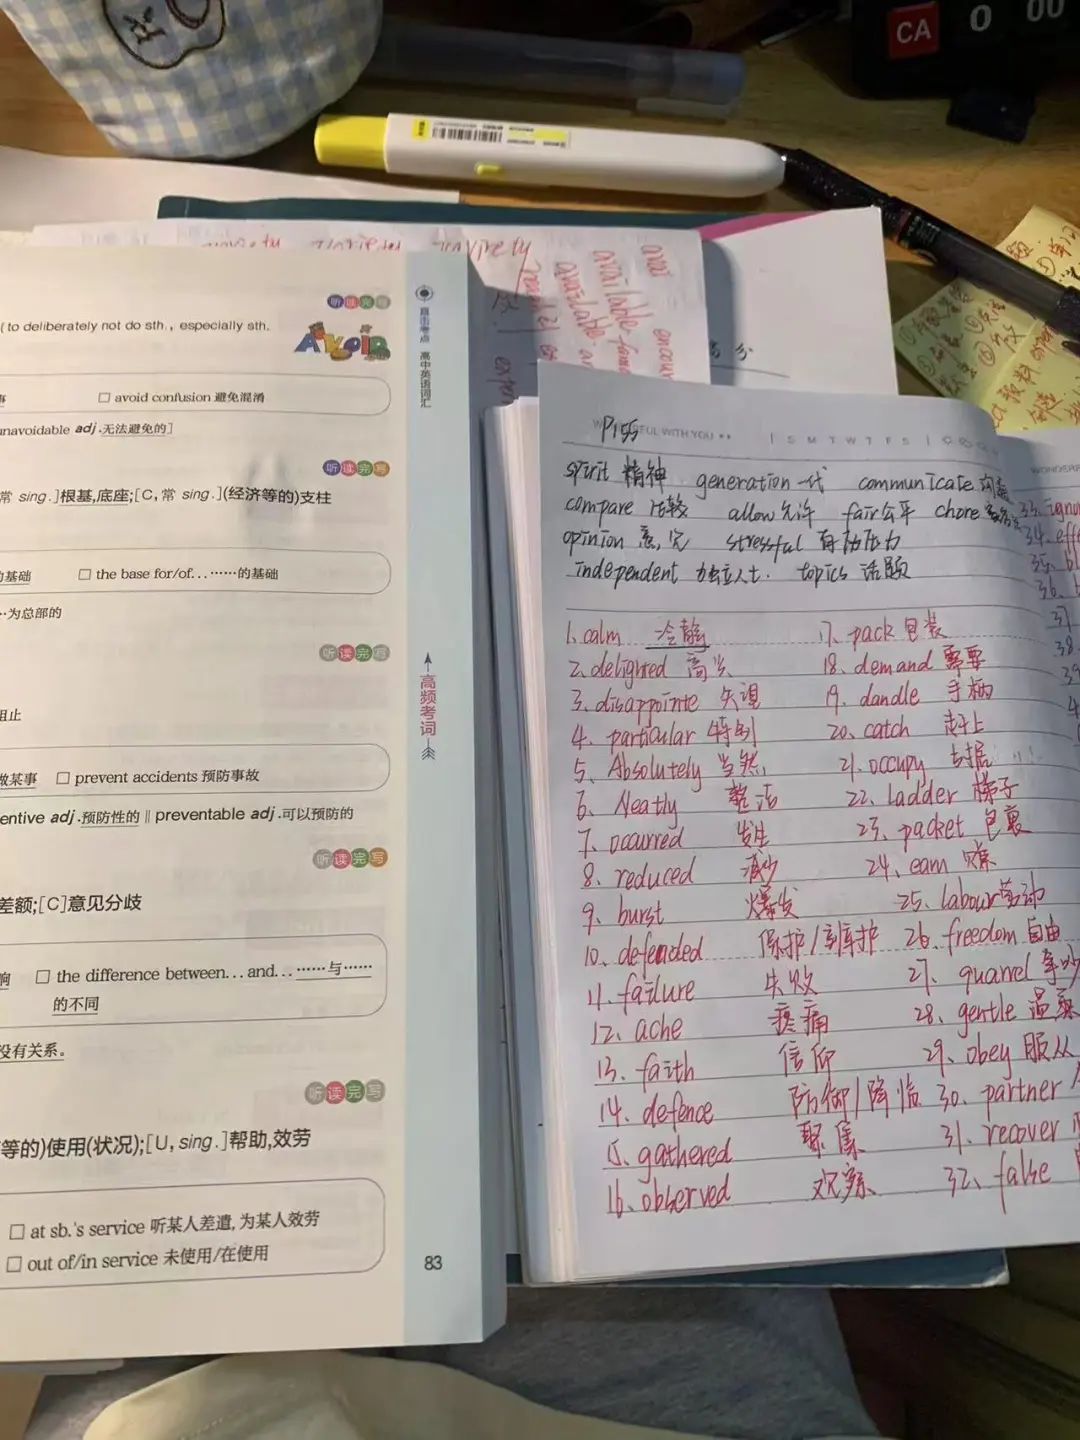 CA 0 00
听读完写
(to deliberately not do sth., especially sth.
AVOID
事 □ avoid confusion 避免混淆
unavoidable adj.无法避免的]
听读完写
常 sing.]根基,底座;[C,常 sing.](经济等的)支柱
的基础 □ the base for/of…⋯⋯的基础
⋯为总部的
听读完写
阻止
做某事 □ prevent accidents 预防事故
entive adj.预防性的 ‖ preventable adj.可以预防的
听读完写
差额;[C]意见分歧
响 □ the difference between…and…⋯⋯与⋯⋯
的不同
没有关系。
听读完写
等的)使用(状况);[U, sing.]帮助,效劳
□ at sb.'s service 听某人差遣,为某人效劳
□ out of/in service 未使用/在使用
直击考点 高中英语词汇
高频考词
83
avai
available
available
encour
P155
FUL WITH YOU
S M T W T F S
spirit 精神 generation 一代 communicate
compare 比较 allow 允许 fair 公平 chore
opinion 意见 stressful 有压力
independent 独立人士. topics 话题
1. calm 冷静
2. delighted 高兴
3. disappointe 失望
4. particular 特别
5. Absolutely 当然
6. Neatly 整洁
7. occurred 发生
8. reduced 减少
9. burst 爆发
10. defended 保护/
11. failure 失败
12. ache 疼痛
13. faith 信仰
14. defence 防御/降临
15. gathered 聚集
16. observed 观察
17. pack 包装
18. demand 需要
19. dandle 手柄
20. catch 赶上
21. occupy 占据
22. Ladder 梯子
23. packet 包裹
24. eam 赚
25. labour 劳动
26. freedom 自由
27. quarrel
28. gentle 温柔
29. obey 服从
30. partner
31. recover
32. false
WONDERF
33. igno
34. eff
35. bl
36.
37
38.
39